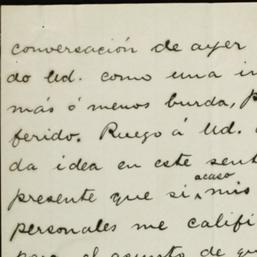 conversación de ayer
do Ud. como una in
más ó menos burda, p
ferido. Ruego á Ud.
da idea en este sent
presente que si acaso mis
personales me califi
para el asunto de qu